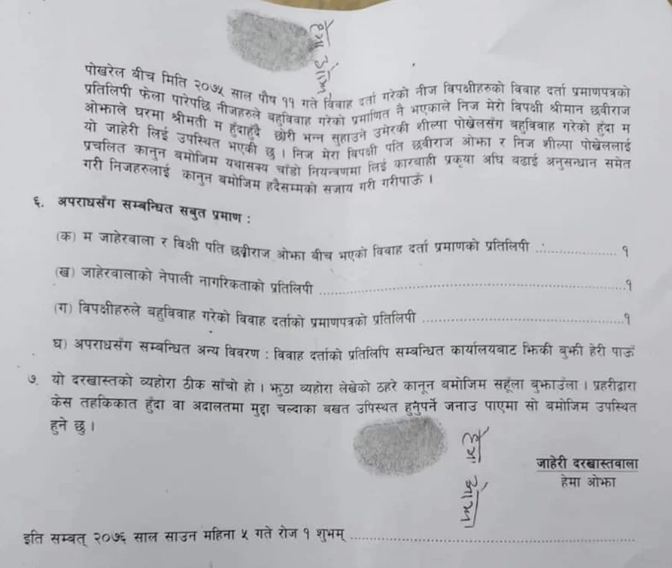 हेमा ओझा
पोखरेल बीच मिति २०७५ साल पौष ११ गते विवाह दर्ता गरेको नीज विपक्षीहरुको विवाह दर्ता प्रमाणपत्रको
प्रतिलिपी फेला पारेपछि नीजहरुले बहुविवाह गरेको प्रमाणित नै भएकाले निज मेरो विपक्षी श्रीमान छवीराज
ओझाले घरमा श्रीमती म हुँदाहुँदै छोरी भन्न सुहाउने उमेरकी शील्पा पोखेलसँग बहुविवाह गरेको हुँदा म
यो जाहेरी लिई उपस्थित भएकी छु । निज मेरा विपक्षी पति छवीराज ओझा र निज शील्पा पोखेललाई
प्रचलित कानुन बमोजिम यथासक्य चाँडो नियन्त्रणमा लिई कारबाही प्रकृया अघि बढाई अनुसन्धान समेत
गरी निजहरुलाई कानुन बमोजिम हदैसम्मको सजाय गरी गरीपाऊँ ।
६. अपराधसँग सम्बन्धित सबुत प्रमाण :
(क) म जाहेरवाला र विक्षी पति छबीराज ओझा बीच भएको विवाह दर्ता प्रमाणको प्रतिलिपी ................ १
(ख) जाहेरवालाको नेपाली नागरिकताको प्रतिलिपी ................ १
(ग) विपक्षीहरुले बहुविवाह गरेको विवाह दर्ताको प्रमाणपत्रको प्रतिलिपी ................ १
घ) अपराधसँग सम्बन्धित अन्य विवरण : विवाह दर्ताको प्रतिलिपि सम्बन्धित कार्यालयबाट झिकी बुझी हेरी पाऊँ
७. यो दरखास्तको व्यहोरा ठीक साँचो हो । झुठा व्यहोरा लेखेको ठहरे कानून बमोजिम सहूँला बुझाउँला । प्रहरीद्वारा
केस तहकिकात हुँदा वा अदालतमा मुद्दा चल्दाका बखत उपिस्थत हुनुपर्ने जनाउ पाएमा सो बमोजिम उपस्थित
हुने छु ।
हेमा ओझा
जाहेरी दरखास्तवाला
हेमा ओझा
इति सम्बत् २०७६ साल साउन महिना ५ गते रोज १ शुभम् ................